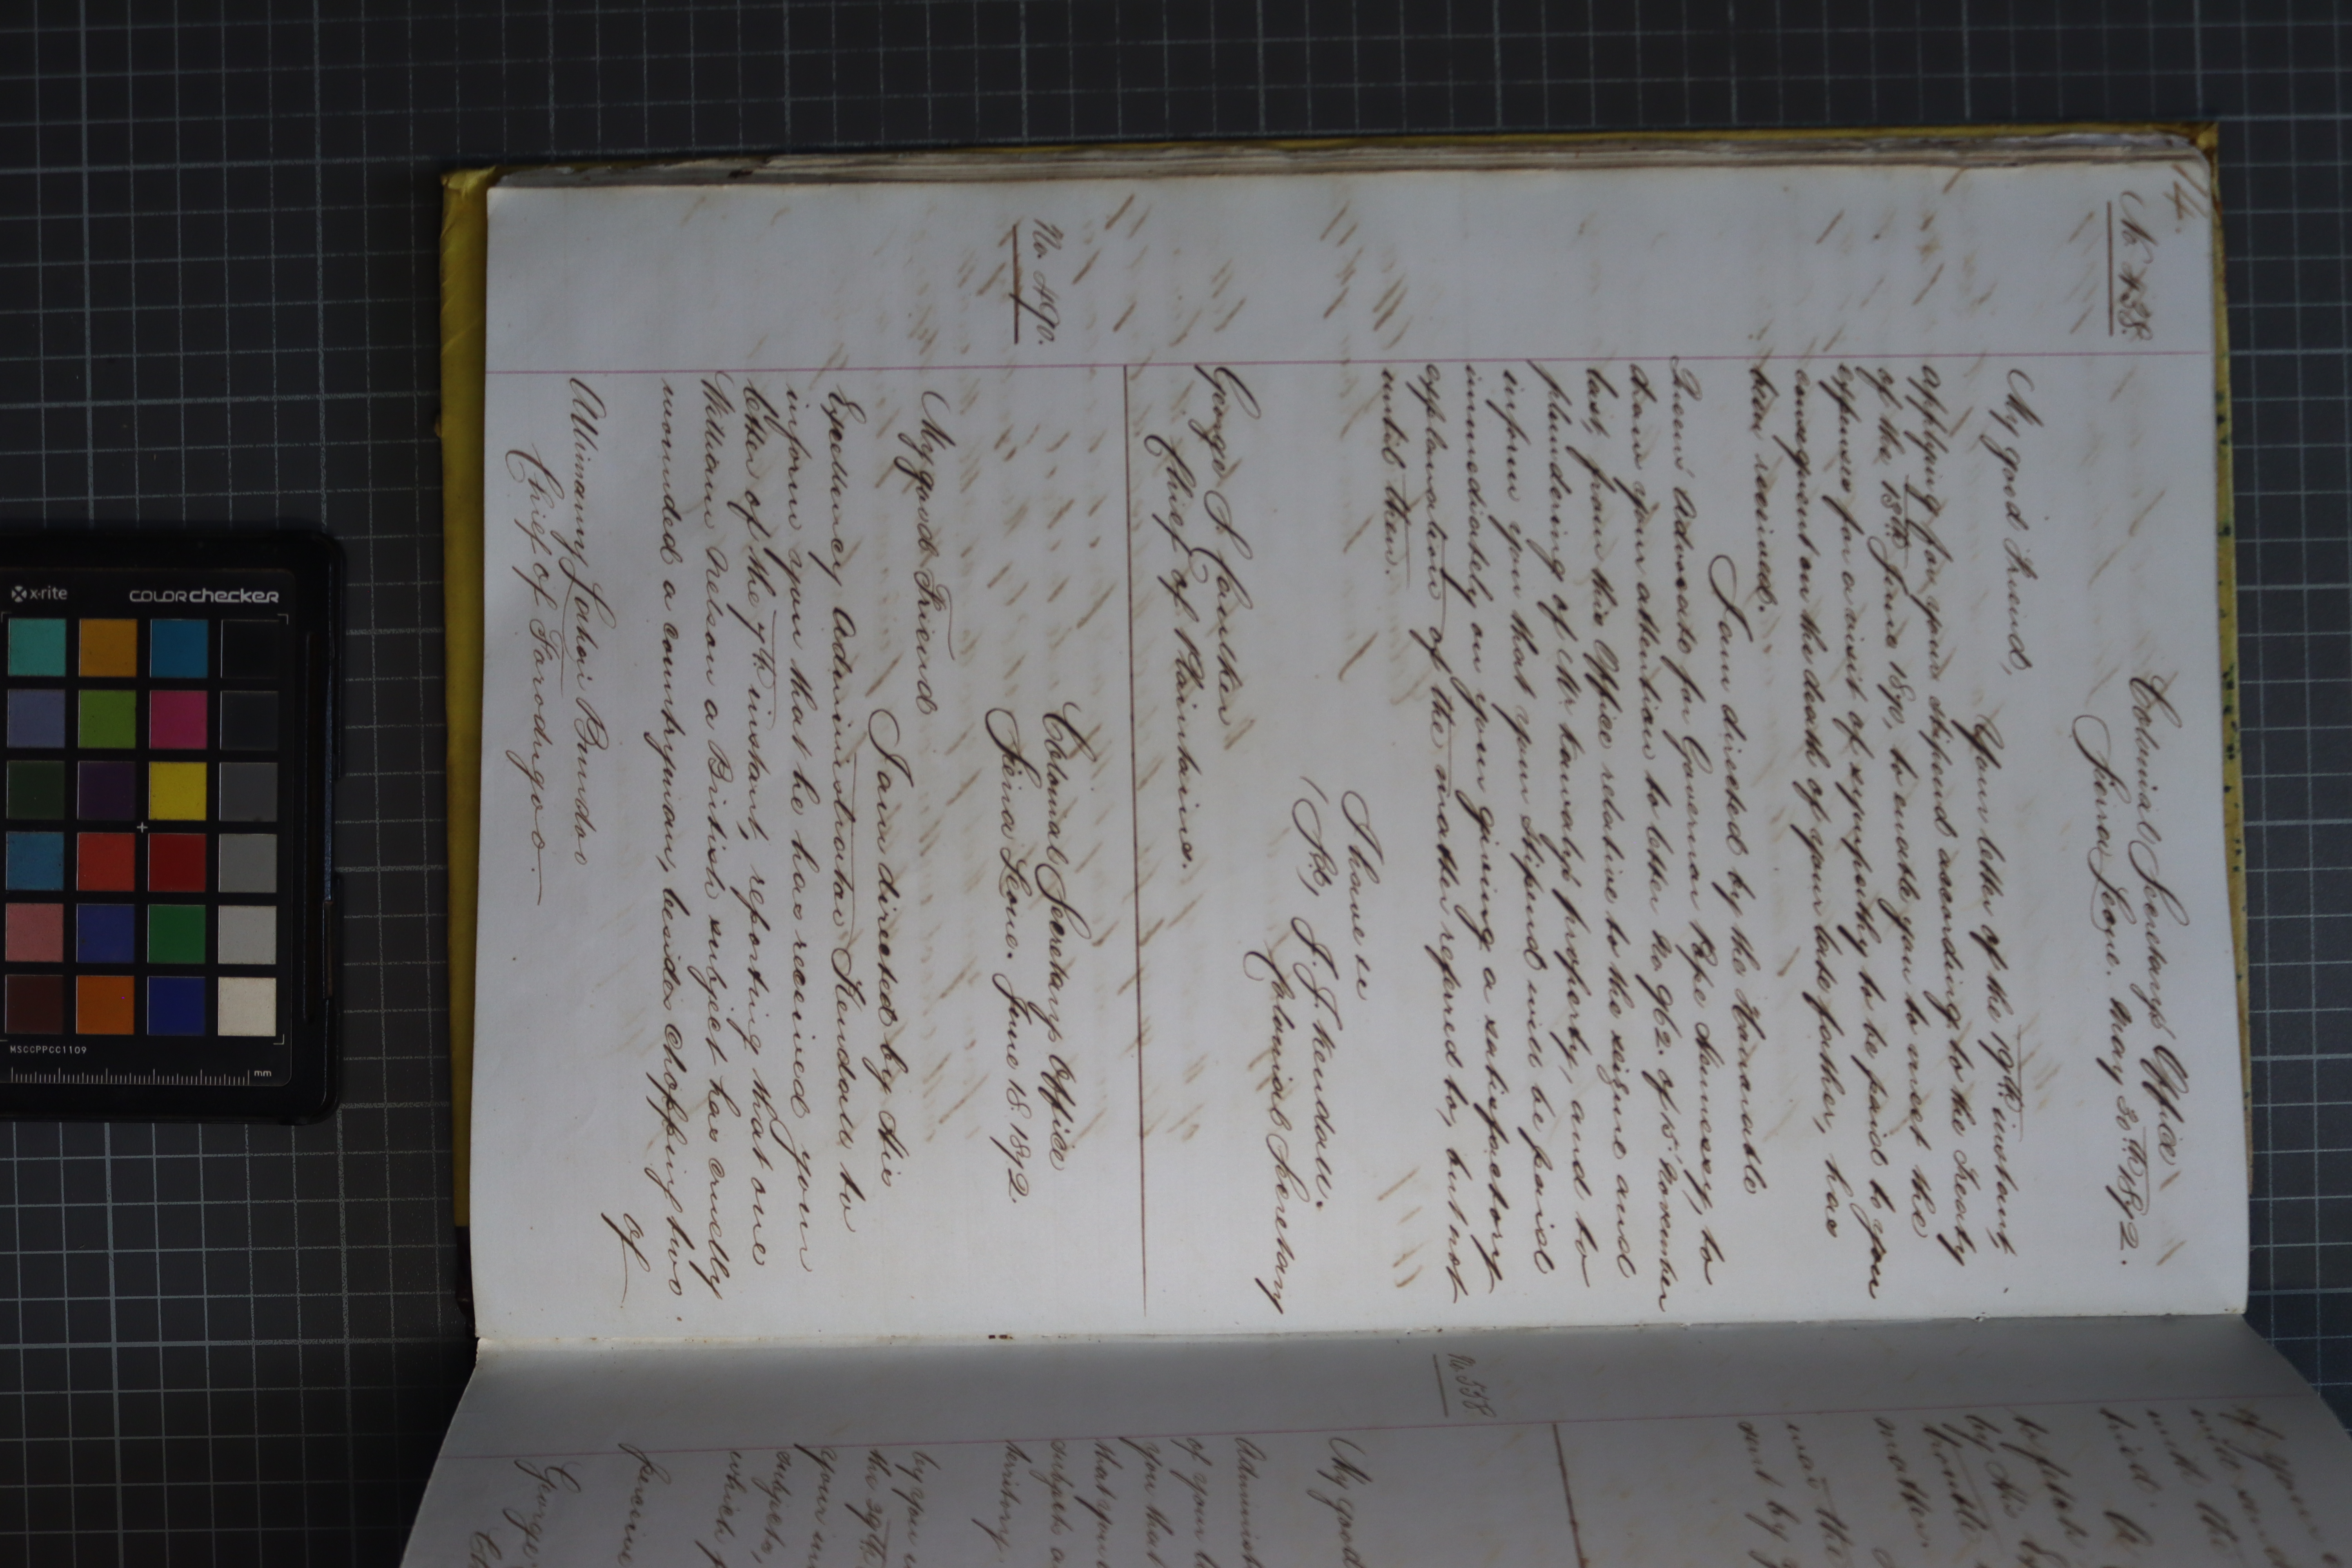 14.
No 438.
Colonial Secretary's Office
Sierra Leone. May 30th 1872.
My good friend,
Your letter of the 19th instant,
applying for your stipend according to the Treaty
of the 18th June 1871, to enable you to meet the
expenses for a visit of sympathy to be paid to you
consequent on the death of your late father, has
been received.
I am directed by the Honorable
Queens' Advocate for Governor Pope Hennessy, to
draw your attention to letter No 962. of 15 November
last, from this Office relative to the seizure and
plundering of Mr property, and to
inform you that your Stipend will be paid
immediately on your giving a satisfactory
explanation of the matter referred to, but not
until then.
I have &c
(Sd) J. J. Kendall.
Colonial Secretary
George S. Caulker
Chief of Plantains.
No 490.
Colonial Secretarys Office
Sierra Leone. June 18. 1872.
My good Friend
I am directed by His
Excellency Administrator Kendall to
inform you that he has received your
letter of the 7th instant, reporting that one
William Nelson a British subject has cruelly
wounded a countryman, besides chopping two
of
Allimamy Lahai Bundo
Chief of Forodugoo.
of your
with the
by His
matter.
was the
sent by
No 558.
My good
Administ
of your
you that
that you
subjects
territory.
by you
the 29th
your
subjects,
which
George
x-rite
colorchecker
MSCCPPCC1109
mm